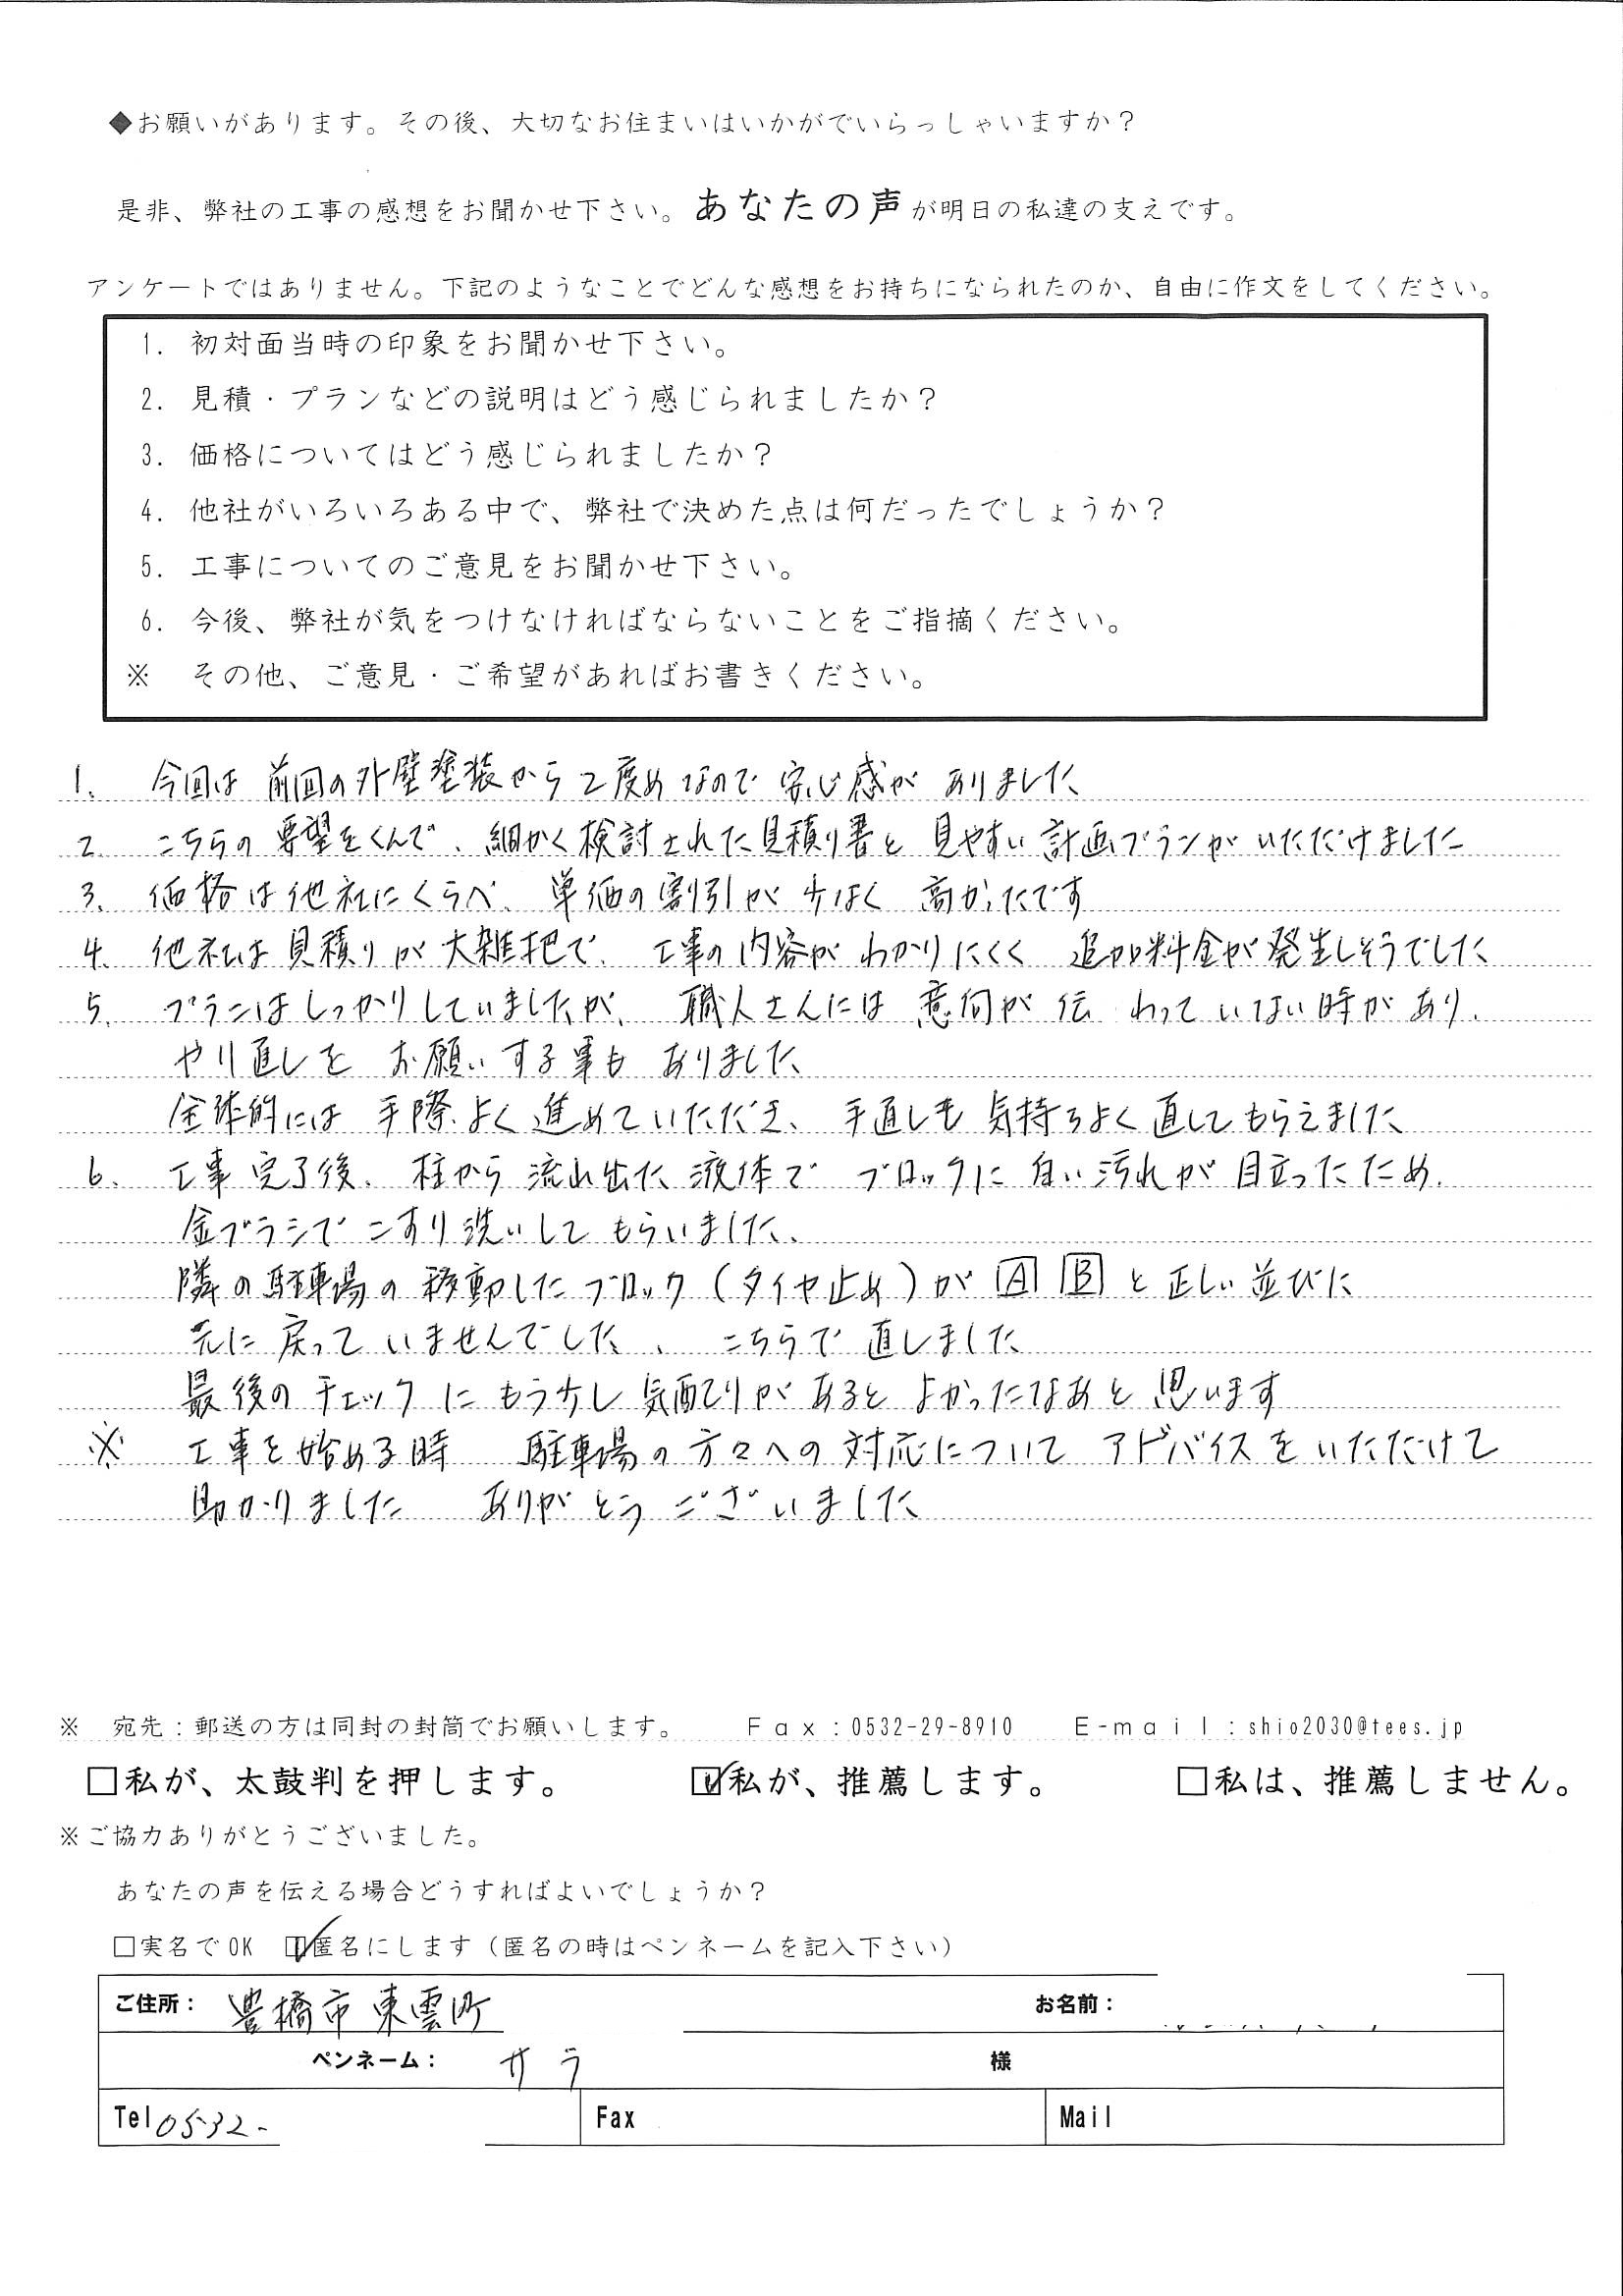 ◆お願いがあります。その後、大切なお住まいはいかがでいらっしゃいますか？
是非、弊社の工事の感想をお聞かせ下さい。あなたの声が明日の私達の支えです。
アンケートではありません。下記のようなことでどんな感想をお持ちになられたのか、自由に作文をしてください。
1. 初対面当時の印象をお聞かせ下さい。
2. 見積・プランなどの説明はどう感じられましたか？
3. 価格についてはどう感じられましたか？
4. 他社がいろいろある中で、弊社で決めた点は何だったでしょうか？
5. 工事についてのご意見をお聞かせ下さい。
6. 今後、弊社が気をつけなければならないことをご指摘ください。
※ その他、ご意見・ご希望があればお書きください。
1、 今回は 前回の外壁塗装から2度めなので 安心感が ありました
2、 こちらの 要望をくんで、細かく検討された見積り書と 見やすい 計画プランが いただけました
3、 価格は他社にくらべ、単価の割引が 少なく 高かったです
4、 他社は見積りが大雑把で、工事の内容が わかりにくく 追加料金が発生しそうでした
5、 プランはしっかりしていましたが、職人さんには 意向が 伝わっていない時があり、
やり直しを お願いする事も ありました
全体的には 手際よく進めていただき、手直しも 気持ちよく直してもらえました
6、 工事完了後、柱から 流れ出た 液体で ブロックに 白い汚れが 目立ったため、
金ブラシで こすり洗いして もらいました、
隣の駐車場の 移動したブロック（タイヤ止め）が A B と 正しい並びに
元に 戻って いませんでした、 こちらで 直しました
最後の チェック に もう少し 気配りが あると よかったなあと 思います
※ 工事を始める時 駐車場の方々への 対応について アドバイスを いただけて
助かりました ありがとう ございました
※ 宛先：郵送の方は同封の封筒でお願いします。 Fax：0532-29-8910 E-mail：shio2030@tees.jp
□私が、太鼓判を押します。 ☑私が、推薦します。 □私は、推薦しません。
※ご協力ありがとうございました。
あなたの声を伝える場合どうすればよいでしょうか？
□実名でOK ☑匿名にします（匿名の時はペンネームを記入下さい）
ご住所： 豊橋市東雲町 お名前：
ペンネーム： サラ 様
Tel 0532- Fax Mail